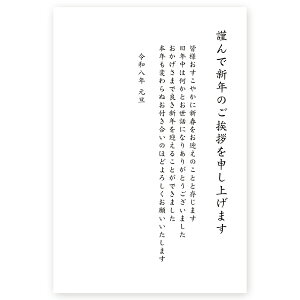 謹んで新年のご挨拶を申し上げます
皆様おすこやかに新春をお迎えのことと存じます
旧年中は何かとお世話になりありがとうございました
おかげさまで良き新年を迎えることができました
本年も変わらぬお付き合いのほどよろしくお願いいたします
令和八年 元旦